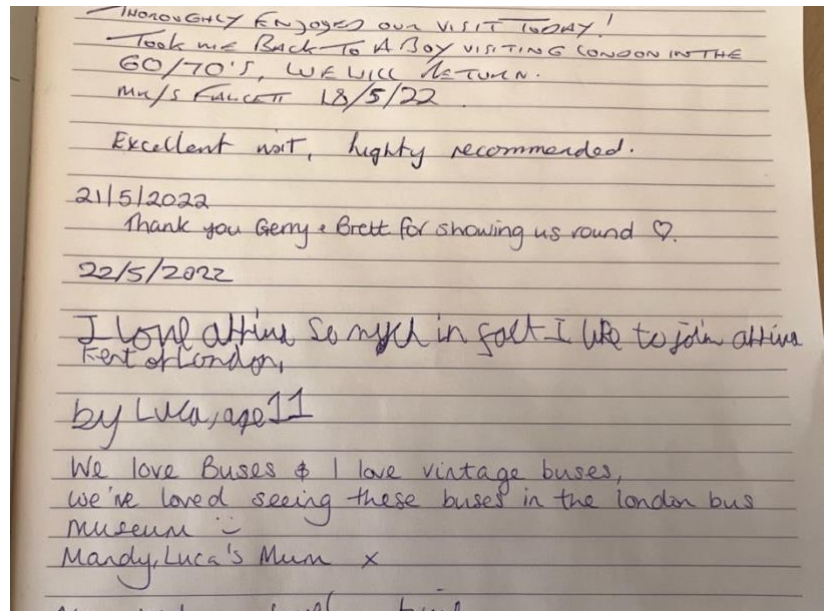 THOROUGHLY ENJOYED OUR VISIT TODAY!
TOOK ME BACK TO A BOY VISITING LONDON IN THE
60/70'S, WE WILL RETURN.
MR/S FAWCETT 18/5/22
Excellent visit, highty recommended.
21/5/2022
Thank you Gerry & Brett for showing us round ♡.
22/5/2022
I love so mych in fact I like to join
of London,
by Luca, age 11
We love Buses & I love vintage buses,
we've loved seeing these buses in the london bus
museum
Mandy, Luca's Mum x